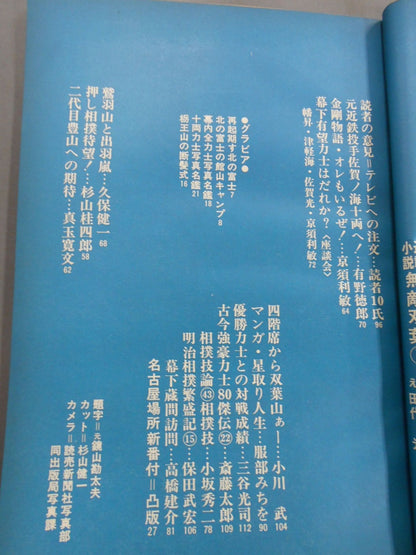 読者の意見=テレビへの注文…読者10氏 96
元近鉄投手佐賀ノ海十両へ!…有野徳郎 70
金剛物語・オレもいるぜ!…京須利敏 64
幕下有望力士はだれか?〈座談会〉
幡昇・津軽海・佐賀光・京須利敏 72
●グラビア●
再起期す北の富士 7
北の富士の館山キャンプ 8
幕内全力士写真名鑑 18
十両力士写真名鑑 21
栃王山の断髪式 16
鷲羽山と出羽嵐…久保健一 68
押し相撲待望!…杉山桂四郎 58
二代目豊山への期待…真玉寛文 62
四階席から双葉山ぁー…小川武 104
マンガ・星取り人生…服部みちを 90
優勝力士との対戦成績…三谷光司 112
古今強豪力士80傑伝㉒…斎藤太郎 109
相撲技論㊸相撲技…小坂秀二 78
明治相撲繁盛記⑮…保田武宏 106
幕下蔵間訪問…高橋建介 81
名古屋場所新番付=凸版 27
題字=元鏡山勘太夫
カット=杉山健一
カメラ=読売新聞社写真部
同出版局写真課
小説 無敵双葉